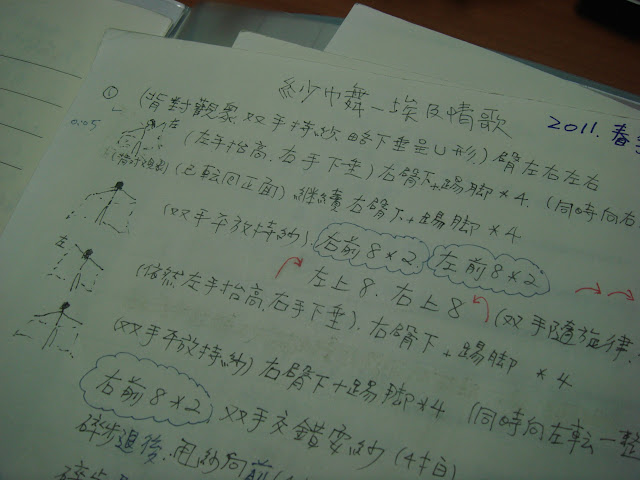 紗巾舞－埃及情歌
2011.春
① (背對觀眾 双手持紗 略下垂呈U形) 臂左右左右
0:05 左 (左手抬高、右手下垂) 右臂下+踢脚*4. (同時向右
(已転回正面) 継續右臂下+踢脚*4
(双手平放持紗) 右前8×2 左前8×2
左 左上8.右上8 (双手隨旋律.
(依然左手抬高,右手下垂). 右臂下+踢脚 *4
(双手平放持紗) 右臂下+踢脚*4 (同時向左転一整
右前8×2 双手交錯耍紗 (4拍)
碎步退後.甩紗向前(
碎步